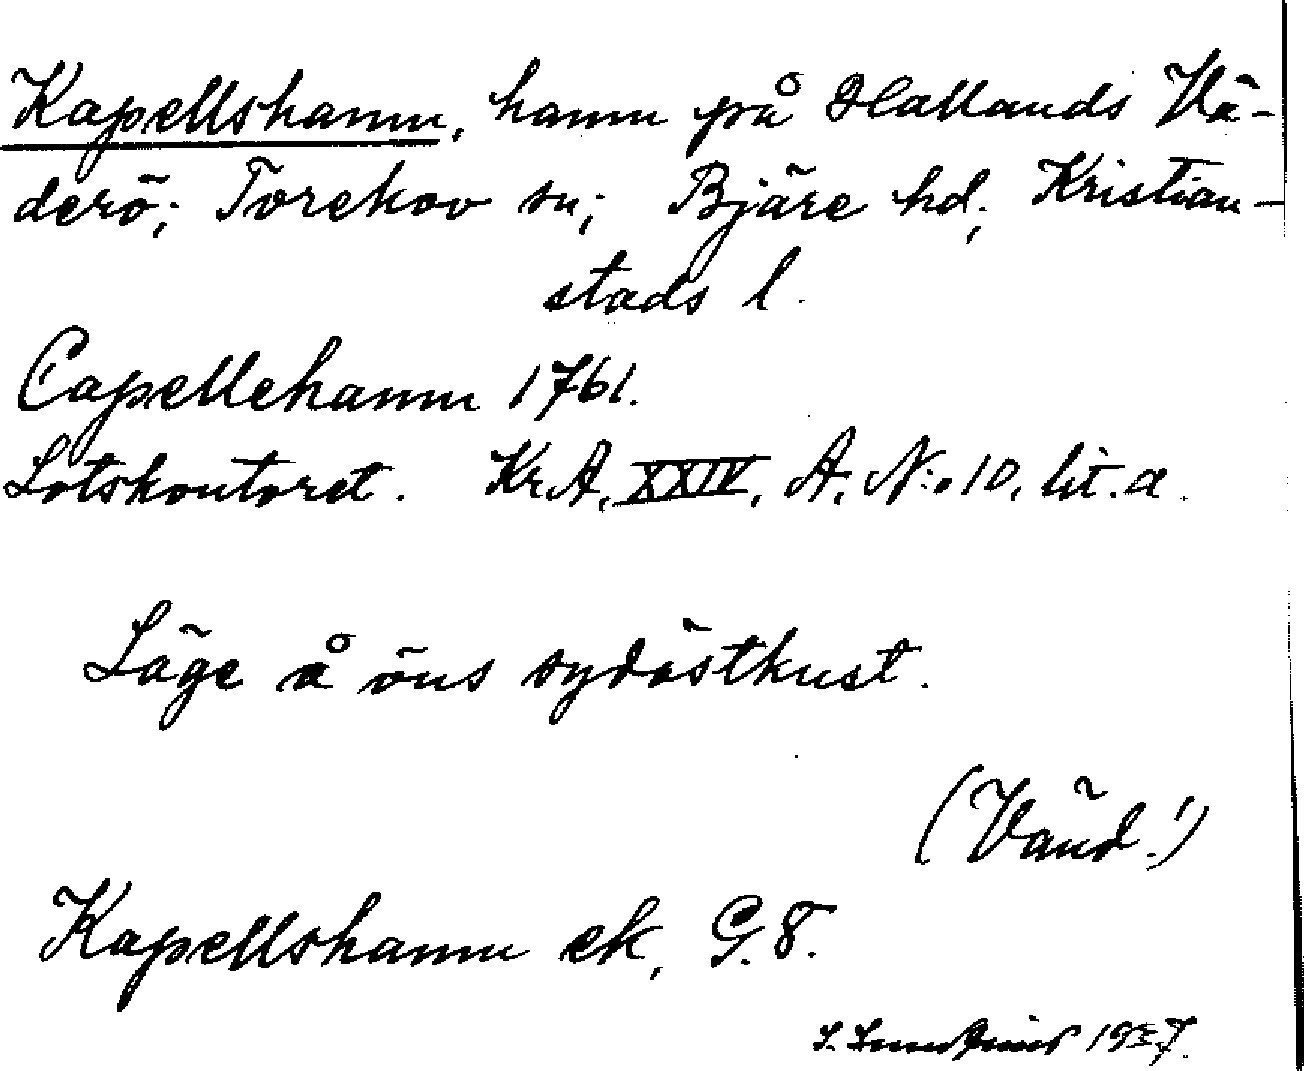 Kapellshamn, hamn på Hallands Vä-
derö; Torekov sn; Bjäre hd; Kristian-
stads l.
Capellehamn 1761.
Lotskontoret. Kr.A. XXIV. A. N:o 10. lit. a.
Läge å öns sydöstkust.
(Vänd!)
Kapellshamn ek, G. 8.